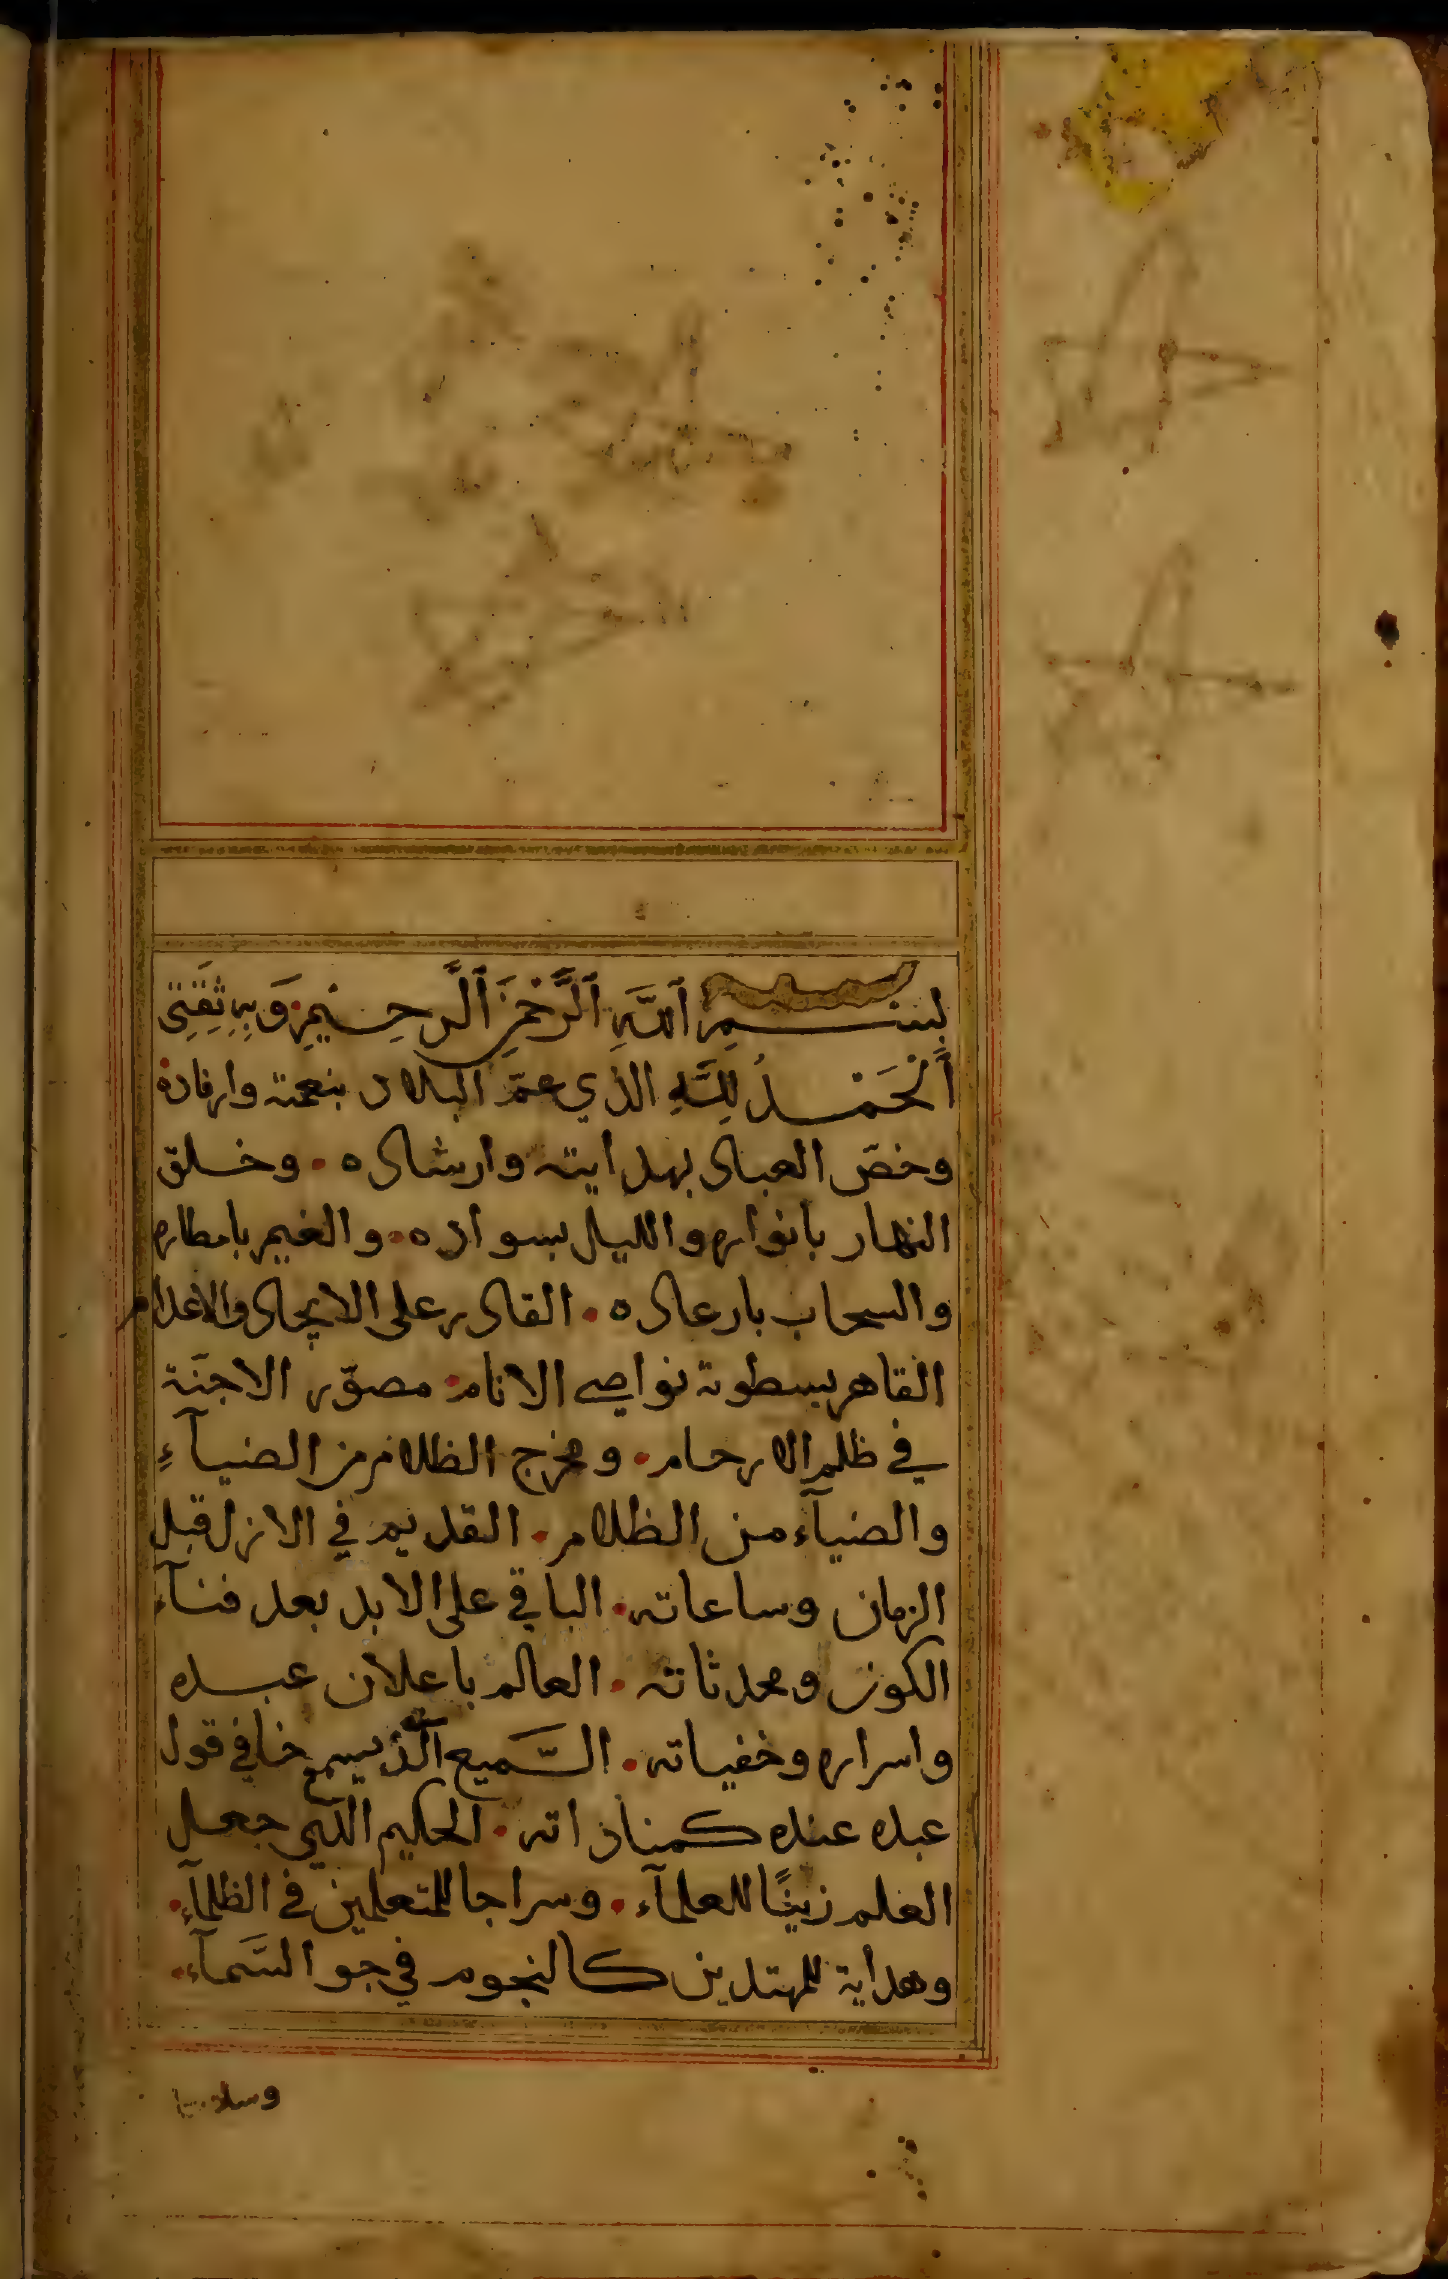 بِسْمِ اَللَّهِ اَلرَّحْمَنِ اَلرَّحِيمِ وَبِهِ ثِقَتِي
اَلْحَمْدُ لِلَّهِ الذي عمّ البلاد بنعمته وارفاده
وخصّ العباد بهدايته وارشاده • وخلق
النهار بانواره والليل بسواده • والغيم بامطاره
والسحاب بارعاده • القادر على الايجاد والاعدام
القاهر بسطوته نواصي الانام • مصوّر الاجنّة
في ظلم الارحام • ومخرج الظلام من الضيآءِ
والضيآء من الظلام • القديم في الازل قبل
الزمان وساعاته • الباقي على الابد بعد فنآء
الكون ومحدثاته • العالم باعلان عبده
واسراره وخفياته • السّميع اَلّذي يسمع خافي قول
عبده عنده كمناداته • الحكيم الذي جعل
العلم زينًا للعلمآء • وسراجا للمتعلمين في الظلمآء •
وهداية للمهتدين كالنجوم في جو السَّمآء •